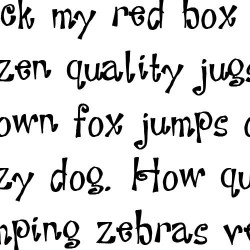 ck my red box
zen quality jugs
own fox jumps
zy dog. How qu
mping zebras v